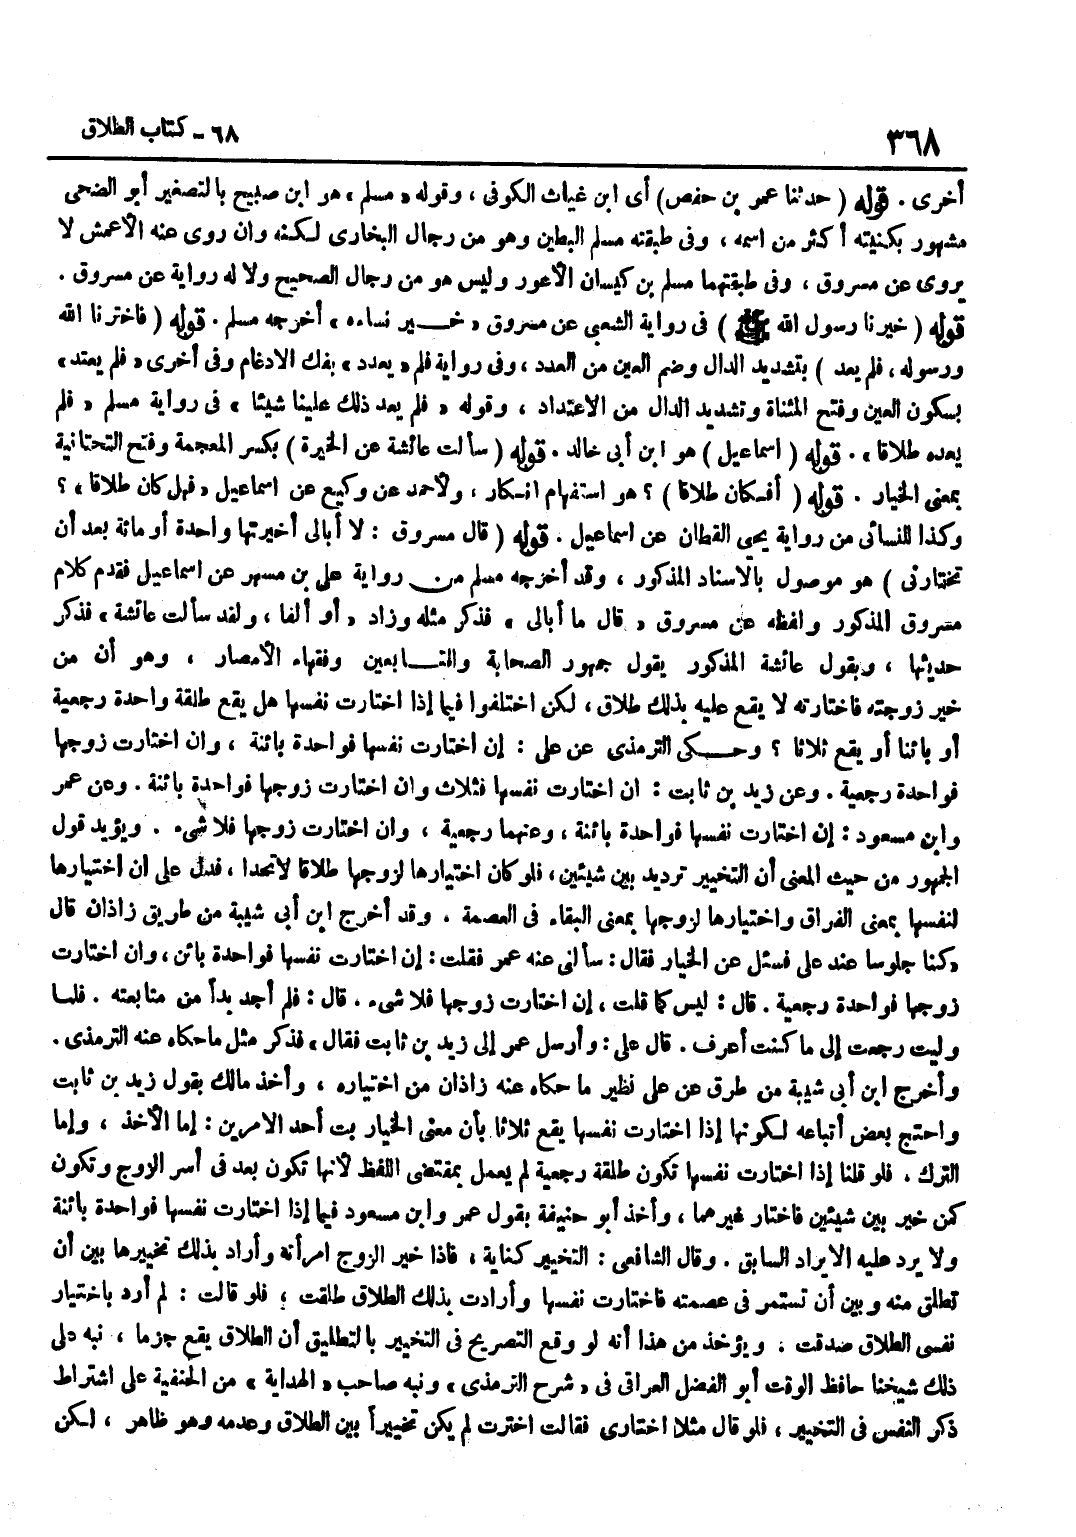 ٣٦٨
٦٨ - كتاب الطلاق
أخرى . قوله ( حدثنا عمر بن حفص ) أى ابن غياث الكوفى ، وقوله « مسلم » هو ابن صبيح بالتصغير أبو الضحى
مشهور بكنيته أكثر من اسمه ، وفى طبقته مسلم البطين وهو من رجال البخارى لكنه وان روى عنه الأعمش لا
يروى عن مسروق ، وفى طبقتهما مسلم بن كيسان الأعور وليس هو من رجال الصحيح ولا له رواية عن مسروق .
قوله ( خيرنا رسول الله ﷺ ) فى رواية الشعبى عن مسروق « خير نساءه » أخرجه مسلم . قوله ( فاخترنا الله
ورسوله ، فلم يعد ) بتشديد الدال وضم العين من العدد ، وفى رواية فلم « يعدد » بفك الادغام وفى أخرى « فلم يعتد »
بسكون العين وفتح المثناة وتشديد الدال من الاعتداد ، وقوله « فلم يعد ذلك علينا شيئا » فى رواية مسلم « فلم
يعده طلاقا » . قوله ( اسماعيل ) هو ابن أبى خالد . قوله ( سألت عائشة عن الخيرة ) بكسر المعجمة وفتح التحتانية
بمعنى الخيار . قوله ( أفكان طلاقا ) ؟ هو استفهام انكار ، ولأحمد عن وكيع عن اسماعيل « فهل كان طلاقا » ؟
وكذا للنسائى من رواية يحيى القطان عن اسماعيل . قوله ( قال مسروق : لا أبالى أخيرتها واحدة أو مائة بعد أن
تختارنى ) هو موصول بالاسناد المذكور ، وقد أخرجه مسلم من رواية على بن مسهر عن اسماعيل فقدم كلام
مسروق المذكور ولفظه عن مسروق « قال ما أبالى » فذكر مثله وزاد « أو ألفا ، ولقد سألت عائشة » فذكر
حديثها ، وبقول عائشة المذكور يقول جمهور الصحابة والتابعين وفقهاء الأمصار ، وهو أن من
خير زوجته فاختارته لا يقع عليه بذلك طلاق ، لكن اختلفوا فيما إذا اختارت نفسها هل يقع طلقة واحدة رجعية
أو بائنا أو يقع ثلاثا ؟ وحكى الترمذى عن على : إن اختارت نفسها فواحدة بائنة ، وان اختارت زوجها
فواحدة رجعية . وعن زيد بن ثابت : ان اختارت نفسها فثلاث وان اختارت زوجها فواحدة بائنة . وعن عمر
وابن مسعود : إن اختارت نفسها فواحدة بائنة ، وعنهما رجعية ، وان اختارت زوجها فلا شىء . ويؤيد قول
الجمهور من حيث المعنى أن التخيير ترديد بين شيئين ، فلو كان اختيارها لزوجها طلاقا لاتحدا ، فدل على ان اختيارها
لنفسها بمعنى الفراق واختيارها لزوجها بمعنى البقاء فى العصمة . وقد أخرج ابن أبى شيبة من طريق زاذان قال
« كنا جلوسا عند على فسئل عن الخيار فقال : سألنى عنه عمر فقلت : إن اختارت نفسها فواحدة بائن ، وان اختارت
زوجها فواحدة رجعية . قال : ليس كما قلت ، إن اختارت زوجها فلا شىء . قال : فلم أجد بدأ من متابعته . فلما
وليت رجعت إلى ما كنت أعرف . قال على : وأرسل عمر إلى زيد بن ثابت فقال » فذكر مثل ما حكاه عنه الترمذى .
وأخرج ابن أبى شيبة من طرق عن على نظير ما حكاه عنه زاذان من اختياره ، وأخذ مالك بقول زيد بن ثابت
واحتج بعض أتباعه لكونها إذا اختارت نفسها يقع ثلاثا بأن معنى الخيار بت أحد الامرين : إما الأخذ ، وإما
الترك . فلو قلنا إذا اختارت نفسها تكون طلقة رجعية لم يعمل بمقتضى اللفظ لأنها تكون بعد فى أسر الزوج وتكون
كمن خير بين شيئين فاختار غيرهما ، وأخذ أبو حنيفة بقول عمر وابن مسعود فيما إذا اختارت نفسها فواحدة بائنة
ولا يرد عليه الايراد السابق . وقال الشافعى : التخيير كناية ، فاذا خير الزوج امرأته وأراد بذلك تخييرها بين أن
تطلق منه وبين أن تستمر فى عصمته فاختارت نفسها وأرادت بذلك الطلاق طلقت ؛ فلو قالت : لم أرد باختيار
نفسى الطلاق صدقت ، ويؤخذ من هذا أنه لو وقع التصريح فى التخيير بالتطليق أن الطلاق يقع جزما ، نبه على
ذلك شيخنا حافظ الوقت أبو الفضل العراقى فى « شرح الترمذى » ونبه صاحب « الهداية » من الحنفية على اشتراط
ذكر النفس فى التخيير ، فلو قال مثلا اختارى فقالت اخترت لم يكن تخييرأ بين الطلاق وعدمه وهو ظاهر ، لكن